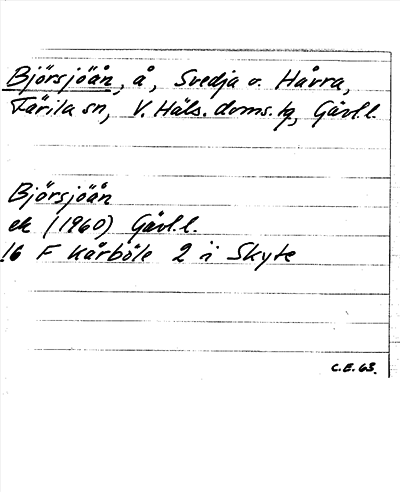 Björsjöån, å, Svedja o. Håvra,
Färila sn, V. Häls. doms. tg, Gävl. l.
Björsjöån
ek (1960) Gävl. l.
16 F Kårböle 2 i Skyte
C.E. 63.